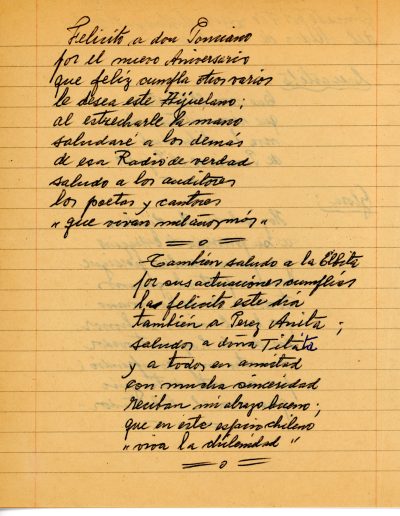 Felicito, a don Ponciano
por el nuevo Aniversario
que feliz cumpla otros varios
le desea este Hijuelano;
al estrecharle la mano
saludaré a los demás
de esa Radio de verdad
saludo a los auditores
los poetas y cantores
"que vivan mil años más"
También saludo a la
por sus actuaciones cumplías
las felicito este día
también a Perez Anita;
saludos a doña Titita
y a todos en amistad
con mucha sinceridad
reciban mi abrazo bueno;
que en este espacio chileno
"viva la chilenidad"